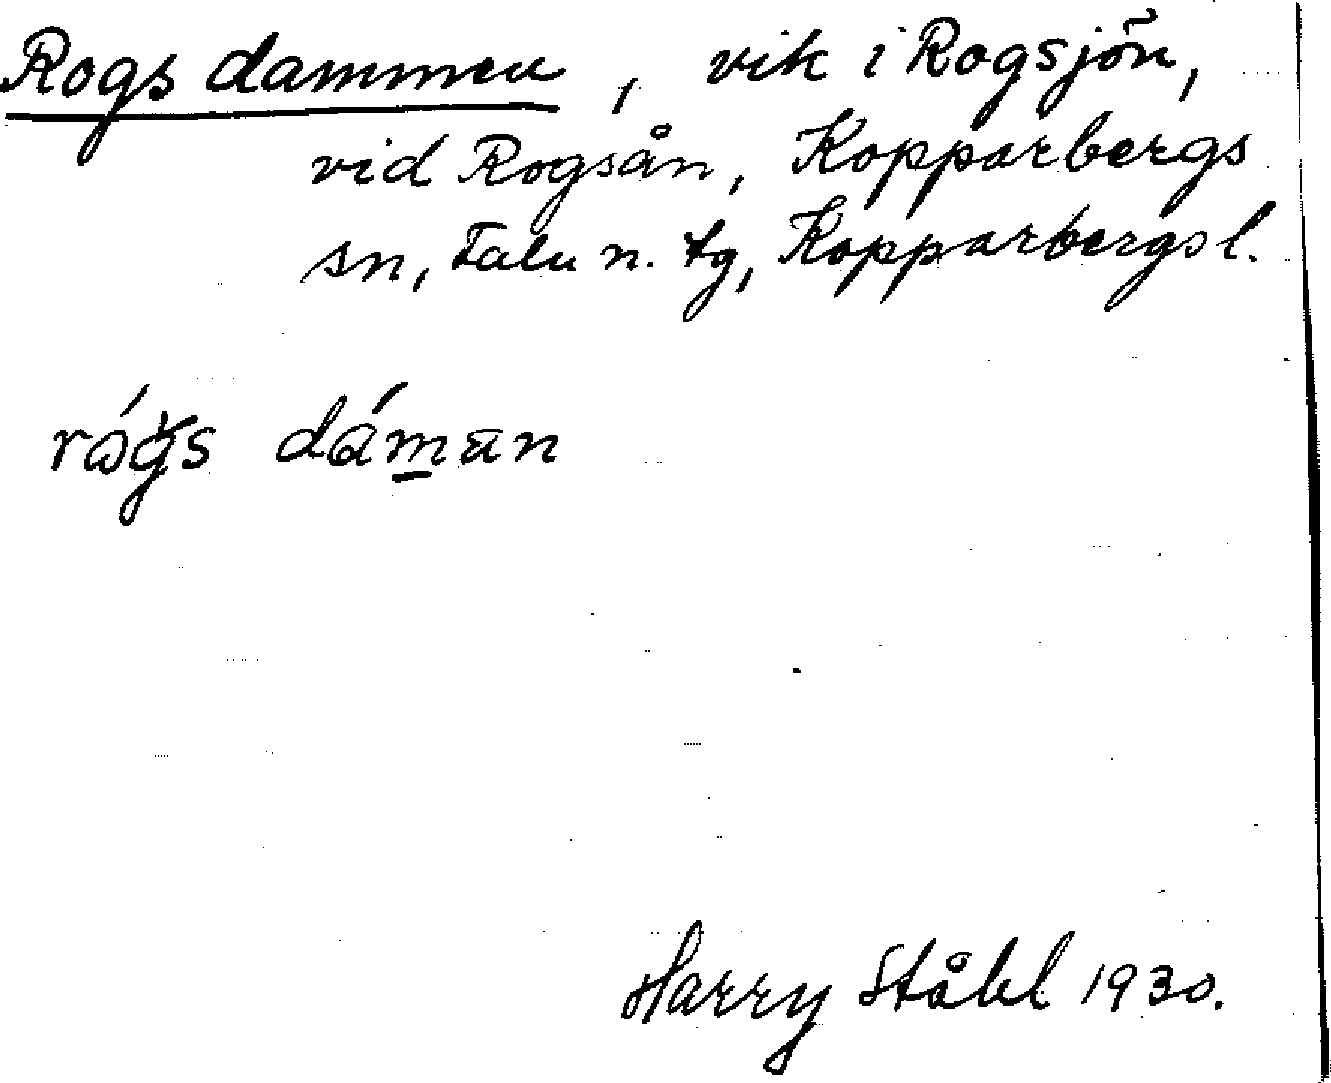 Rogsdammen, vik i Rogsjön,
vid Rogsån, Kopparbergs
sn, Falu n. tg, Kopparbergs l.
rǿgs dámän
Harry Ståhl 1930.